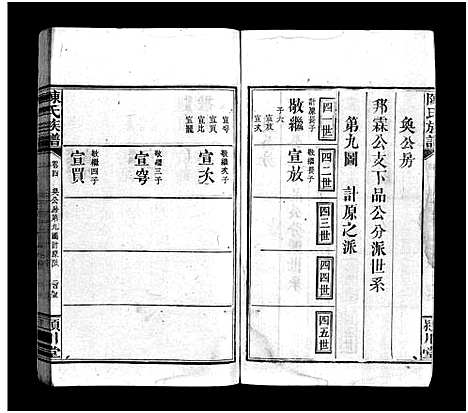 陳氏族譜
奐公房
邦霖公支下品公分派世系
第九圖 計原之派
四一世
四二世
四三世
四四世
四五世
敬繼
計原長子
子六
宣放
敬繼長子
宣次
敬繼次子
宣
敬繼三子
宣買
敬繼四子
陳氏族譜
卷四
奐公房第九圖計原派
潁川堂
潁川堂